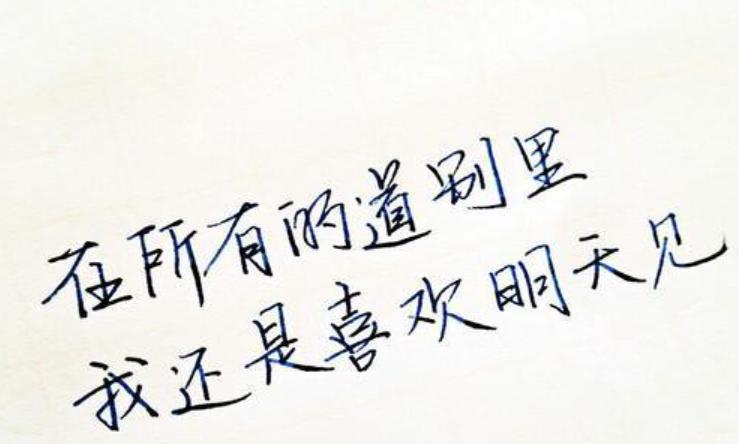 在所有的道别里
我还是喜欢明天见